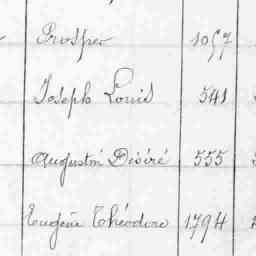 Prosper 1057
Joseph Louis 541
Augustin Désiré 555
Eugène Théodore 1794